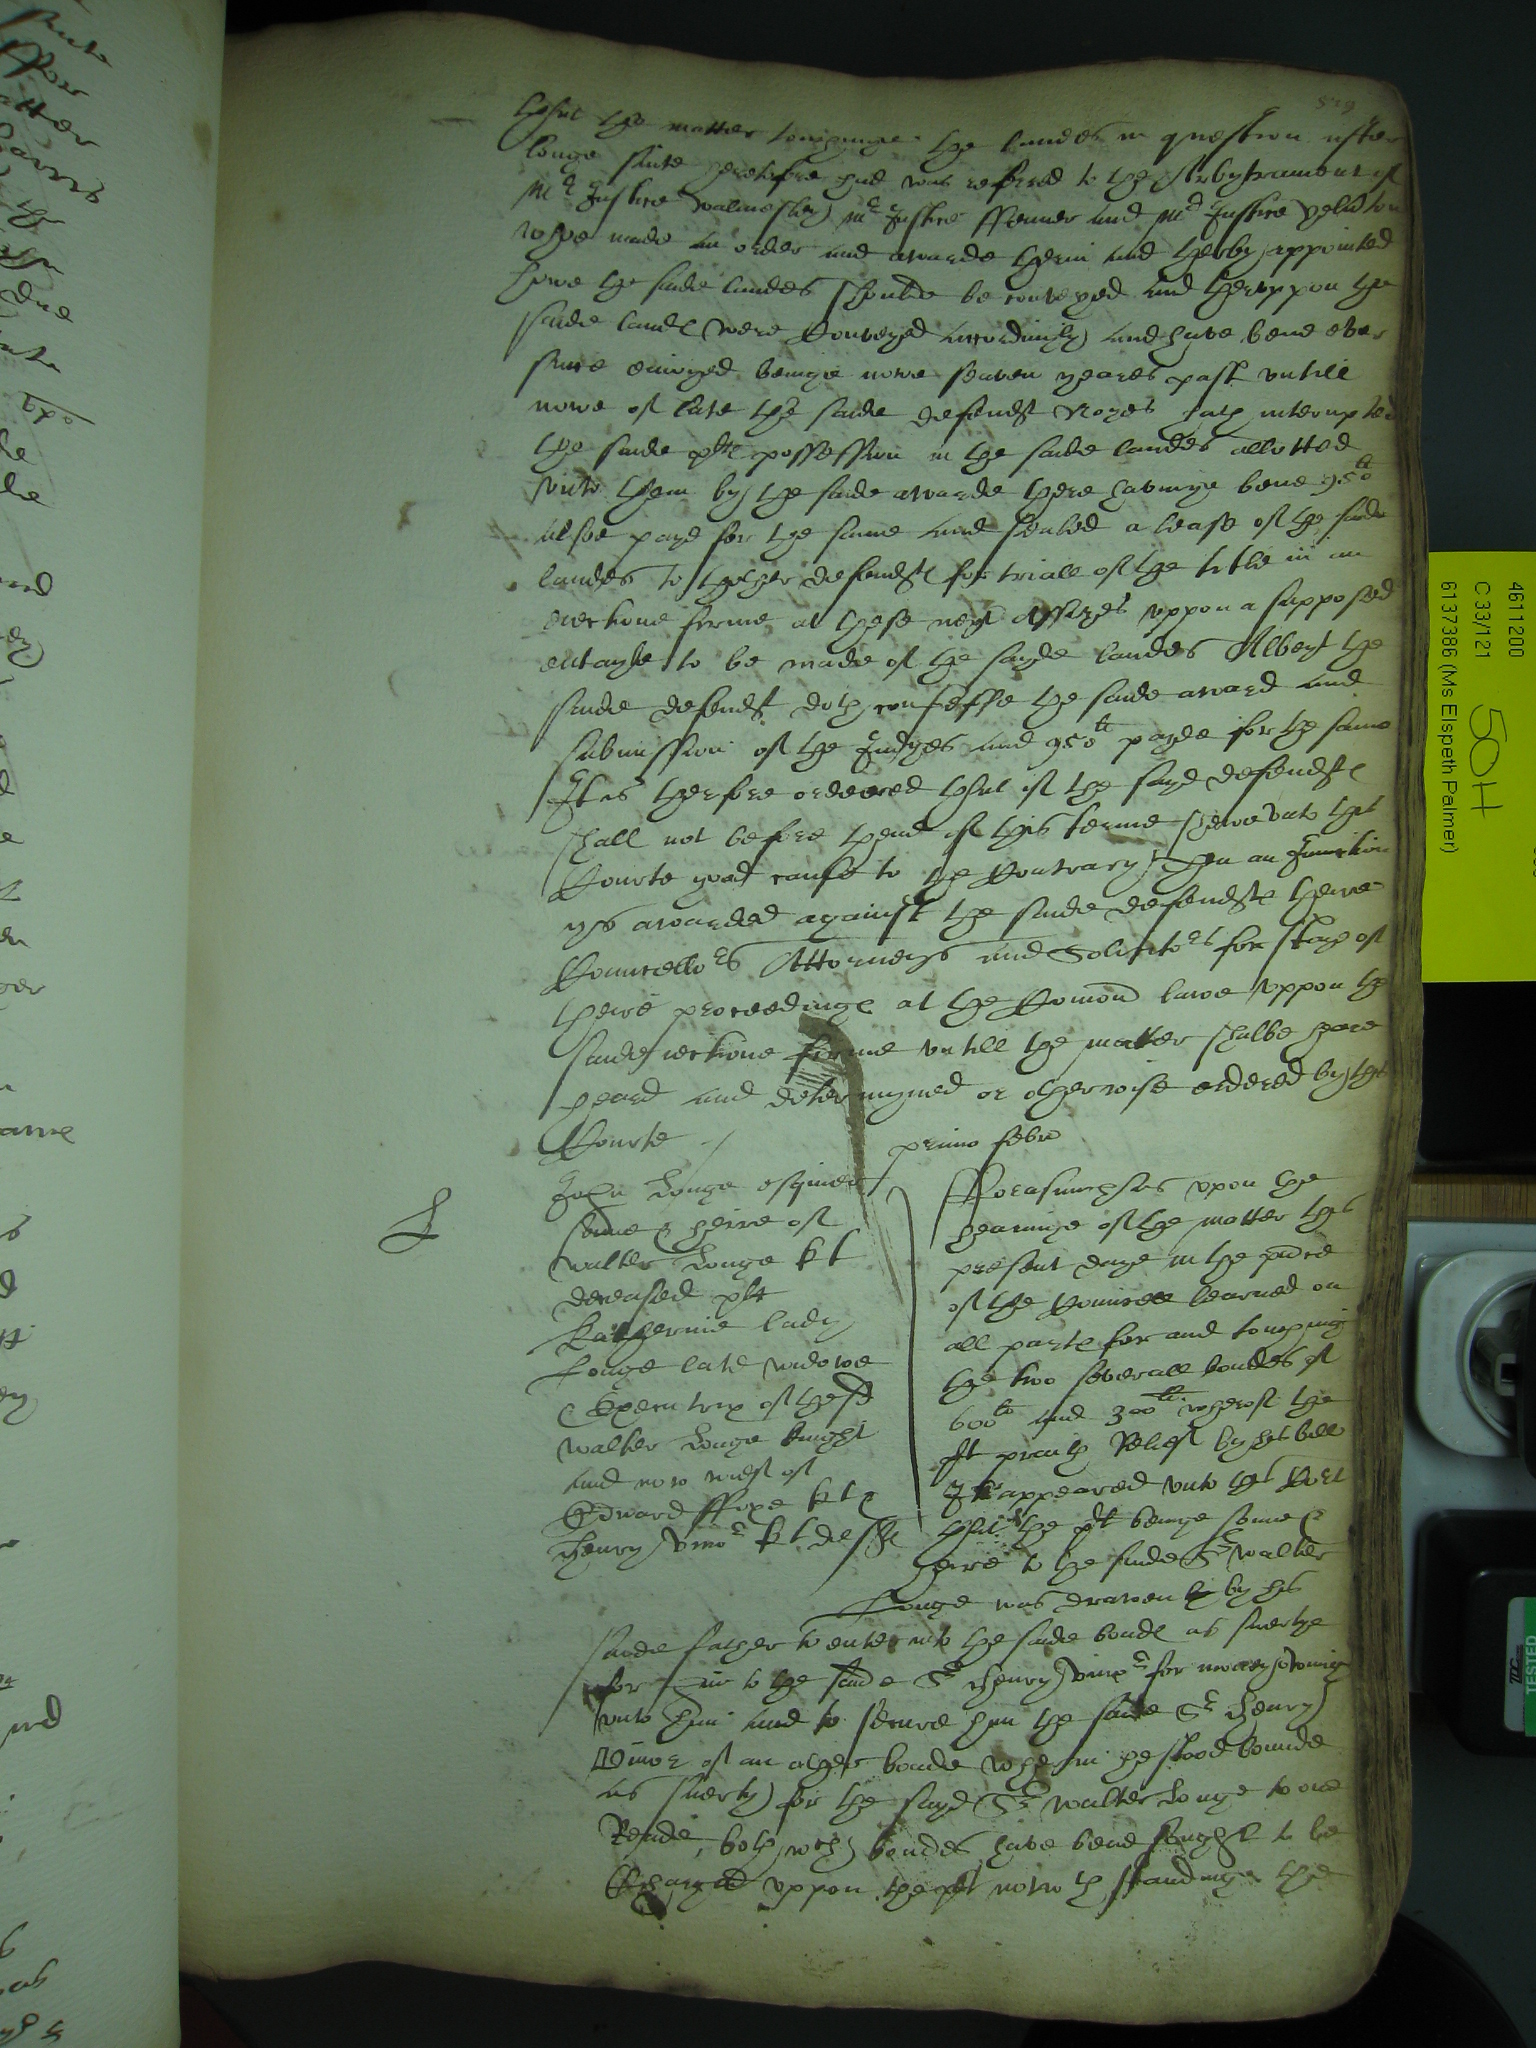 that the matter touchinge the landes in question after
longe suite heretofore had was referred to the Arbytrament of
Mr Justice Walmesley Mr Justice ffenner and Mr Justice Yelverton
whoe made an order and awarde therin and therby appointed
howe the saide landes should be conveyed and theruppon the
saide landes were Conveyed accordingly and have bene ever
since enioyed beinge nowe seaven yeares past untill
nowe of late the saide defendt Noyes hath interrupted
the saide plts possession in the saide landes allotted
unto them by the saide awarde there havinge bene 950li
alsoe payd for the same and sealed a lease of the saide
landes to thother defendtes for triall of the title in an
eiectione firme at these next Assizes uppon a supposed
entayle to be made of the sayde landes Albeyt the
saide defendt doth confesse the saide award and
submission of the Judges and 950li payde for the same
It is therfore ordered that if the sayd defendtes
shall not before thend of this terme shewe unto this
Courte good cause to the Contrary Then an Iniunction
ys awarded against the saide defendtes theire
Councellors Attorneys and Solicitors for stay of
theire proceedinges at the Comon lawe uppon the
saide eiectione firme untill the matter shalbe heare
heard and determyned or otherwise ordered by this
Courte
primo febr
L
John Longe esquier
sonne & heire of
Walter Longe kt
deceased plt
Katherine lady
Longe late widowe
& Executrix of the sd
Walter Longe knight
and now wief of
Edward ffoxe kt &
Henry Vinor kt deftes
Fforasmuch as upon the
hearinge of the matter this
present daye in the pnce
of the Councell learned on
all partes for and touching
the two severall bondes of
600li and 300li wherof the
plt prayeth Relief by his bill
It appeared unto this Cort
that the plt beinge sonne &
heire to the saide Sr Walter
Longe was drawen by his
saide father to enter into the saide bondes as suertye
for him to the saide Sr Henry Vinor for money owing
unto him and to secure him the saide Sr Henry
Vinor of an other bonde wherin he stood bounde
as suerty for the sayd Sr Walter Longe to one
Reade, both wch bondes have bene sought to be
Charged uppon the plt notwthstandinge the
4611200
C 33/121
50H
6137386 (Ms Elspeth Palmer)
TESTED